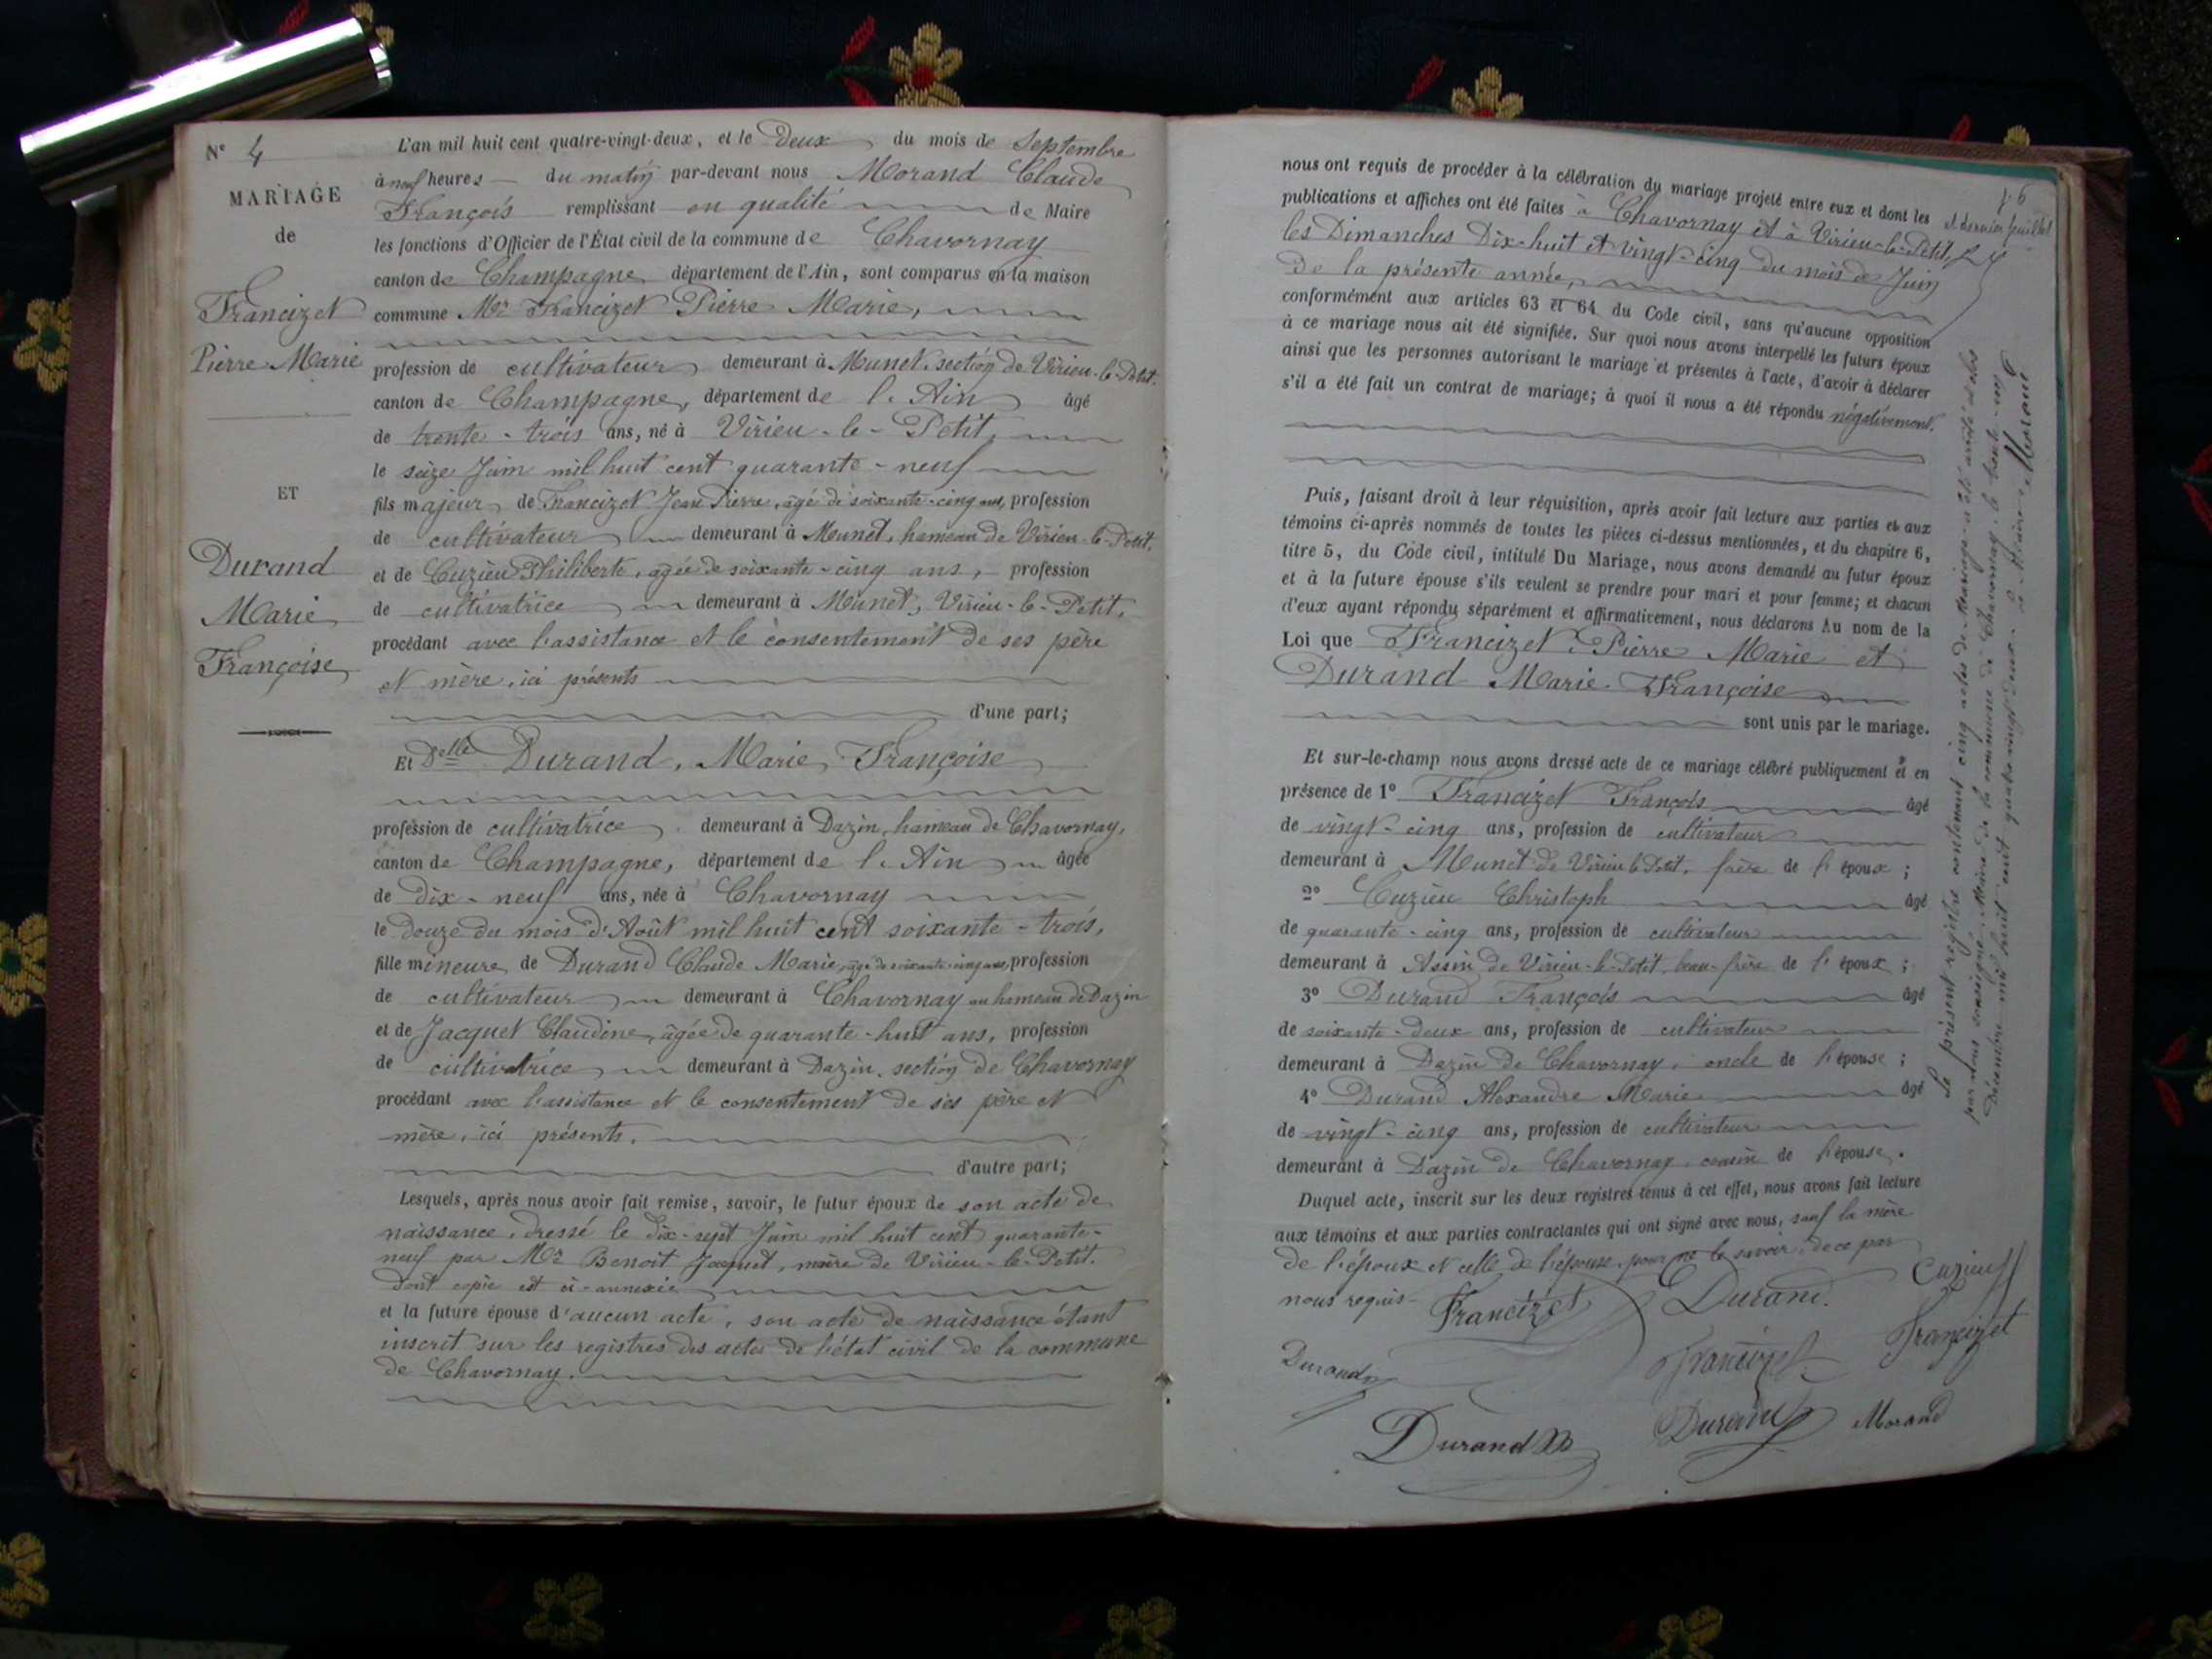 N° 4
MARIAGE
de
Francizet
Pierre Marie
ET
Durand
Marie
Françoise
L'an mil huit cent quatre-vingt-deux, et le Deux du mois de Septembre
à neuf heures du matin par-devant nous Morand Claude
François remplissant en qualité de Maire
les fonctions d'Officier de l'État civil de la commune de Chavornay
canton de Champagne département de l'Ain, sont comparus en la maison
commune Mr Francizet Pierre Marie,
profession de cultivateur demeurant à Munet, section de Virieu-le-Petit.
canton de Champagne, département de l'Ain âgé
de trente-trois ans, né à Virieu-le-Petit,
le seize Juin mil huit cent quarante-neuf
fils majeur de Francizet Jean Pierre, âgé de soixante-cinq ans, profession
de cultivateur demeurant à Munet, hameau de Virieu-le-Petit.
et de Cuzieu Philiberte, âgée de soixante-cinq ans, profession
de cultivatrice demeurant à Munet, Virieu-le-Petit,
procédant avec l'assistance et le consentement de ses père
et mère, ici présents
d'une part;
Et Delle Durand, Marie Françoise
profession de cultivatrice demeurant à Dazin, hameau de Chavornay,
canton de Champagne, département de l'Ain âgée
de dix-neuf ans, née à Chavornay
le douze du mois d'Août mil huit cent soixante-trois,
fille mineure de Durand Claude Marie, âgé de soixante-cinq ans, profession
de cultivateur demeurant à Chavornay au hameau de Dazin
et de Jacquet Claudine, âgée de quarante-huit ans, profession
de cultivatrice demeurant à Dazin, section de Chavornay
procédant avec l'assistance et le consentement de ses père et
mère, ici présents.
d'autre part;
Lesquels, après nous avoir fait remise, savoir, le futur époux de son acte de
naissance, dressé le dix-sept Juin mil huit cent quarante-
neuf par Mr Benoit Jacquet, maire de Virieu-le-Petit.
dont copie est ci-annexée
et la future épouse d'aucun acte, son acte de naissance étant
inscrit sur les registres des actes de l'état civil de la commune
de Chavornay.
nous ont requis de procéder à la célébration du mariage projeté entre eux et dont les
publications et affiches ont été faites à Chavornay et à Virieu-le-Petit,
les Dimanches Dix-huit et vingt-cinq du mois de Juin
de la présente année,
conformément aux articles 63 et 64 du Code civil, sans qu'aucune opposition
à ce mariage nous ait été signifiée. Sur quoi nous avons interpellé les futurs époux
ainsi que les personnes autorisant le mariage et présentes à l'acte, d'avoir à déclarer
s'il a été fait un contrat de mariage; à quoi il nous a été répondu négativement.
Puis, faisant droit à leur réquisition, après avoir fait lecture aux parties et aux
témoins ci-après nommés de toutes les pièces ci-dessus mentionnées, et du chapitre 6,
titre 5, du Code civil, intitulé Du Mariage, nous avons demandé au futur époux
et à la future épouse s'ils veulent se prendre pour mari et pour femme; et chacun
d'eux ayant répondu séparément et affirmativement, nous déclarons Au nom de la
Loi que Francizet Pierre Marie et
Durand Marie Françoise
sont unis par le mariage.
Et sur-le-champ nous avons dressé acte de ce mariage célébré publiquement et en
présence de 1° Francizet François âgé
de vingt-cinq ans, profession de cultivateur
demeurant à Munet de Virieu le Petit, frère de l'époux;
2° Cuzieu Christoph âgé
de quarante-cinq ans, profession de cultivateur
demeurant à Assin de Virieu-le-Petit, beau-frère de l'époux;
3° Durand François âgé
de soixante-deux ans, profession de cultivateur
demeurant à Dazin de Chavornay, oncle de l'épouse;
4° Durand Alexandre Marie âgé
de vingt-cinq ans, profession de cultivateur
demeurant à Dazin de Chavornay, cousin de l'épouse.
Duquel acte, inscrit sur les deux registres tenus à cet effet, nous avons fait lecture
aux témoins et aux parties contractantes qui ont signé avec nous, sauf la mère
de l'époux et celle de l'épouse, pour ne le savoir, de ce par
nous requis
Francizet
Durand.
Cuzieu
Durand
Francizet
Francizet
Durand
Durand
Morand
et dernier feuillet
Le présent registre contenant cinq actes de Mariage a été arrêté et clos
par nous soussigné, Maire de la commune de Chavornay, le trente-un
Décembre mil huit cent quatre-vingt deux. Le Maire, Morand